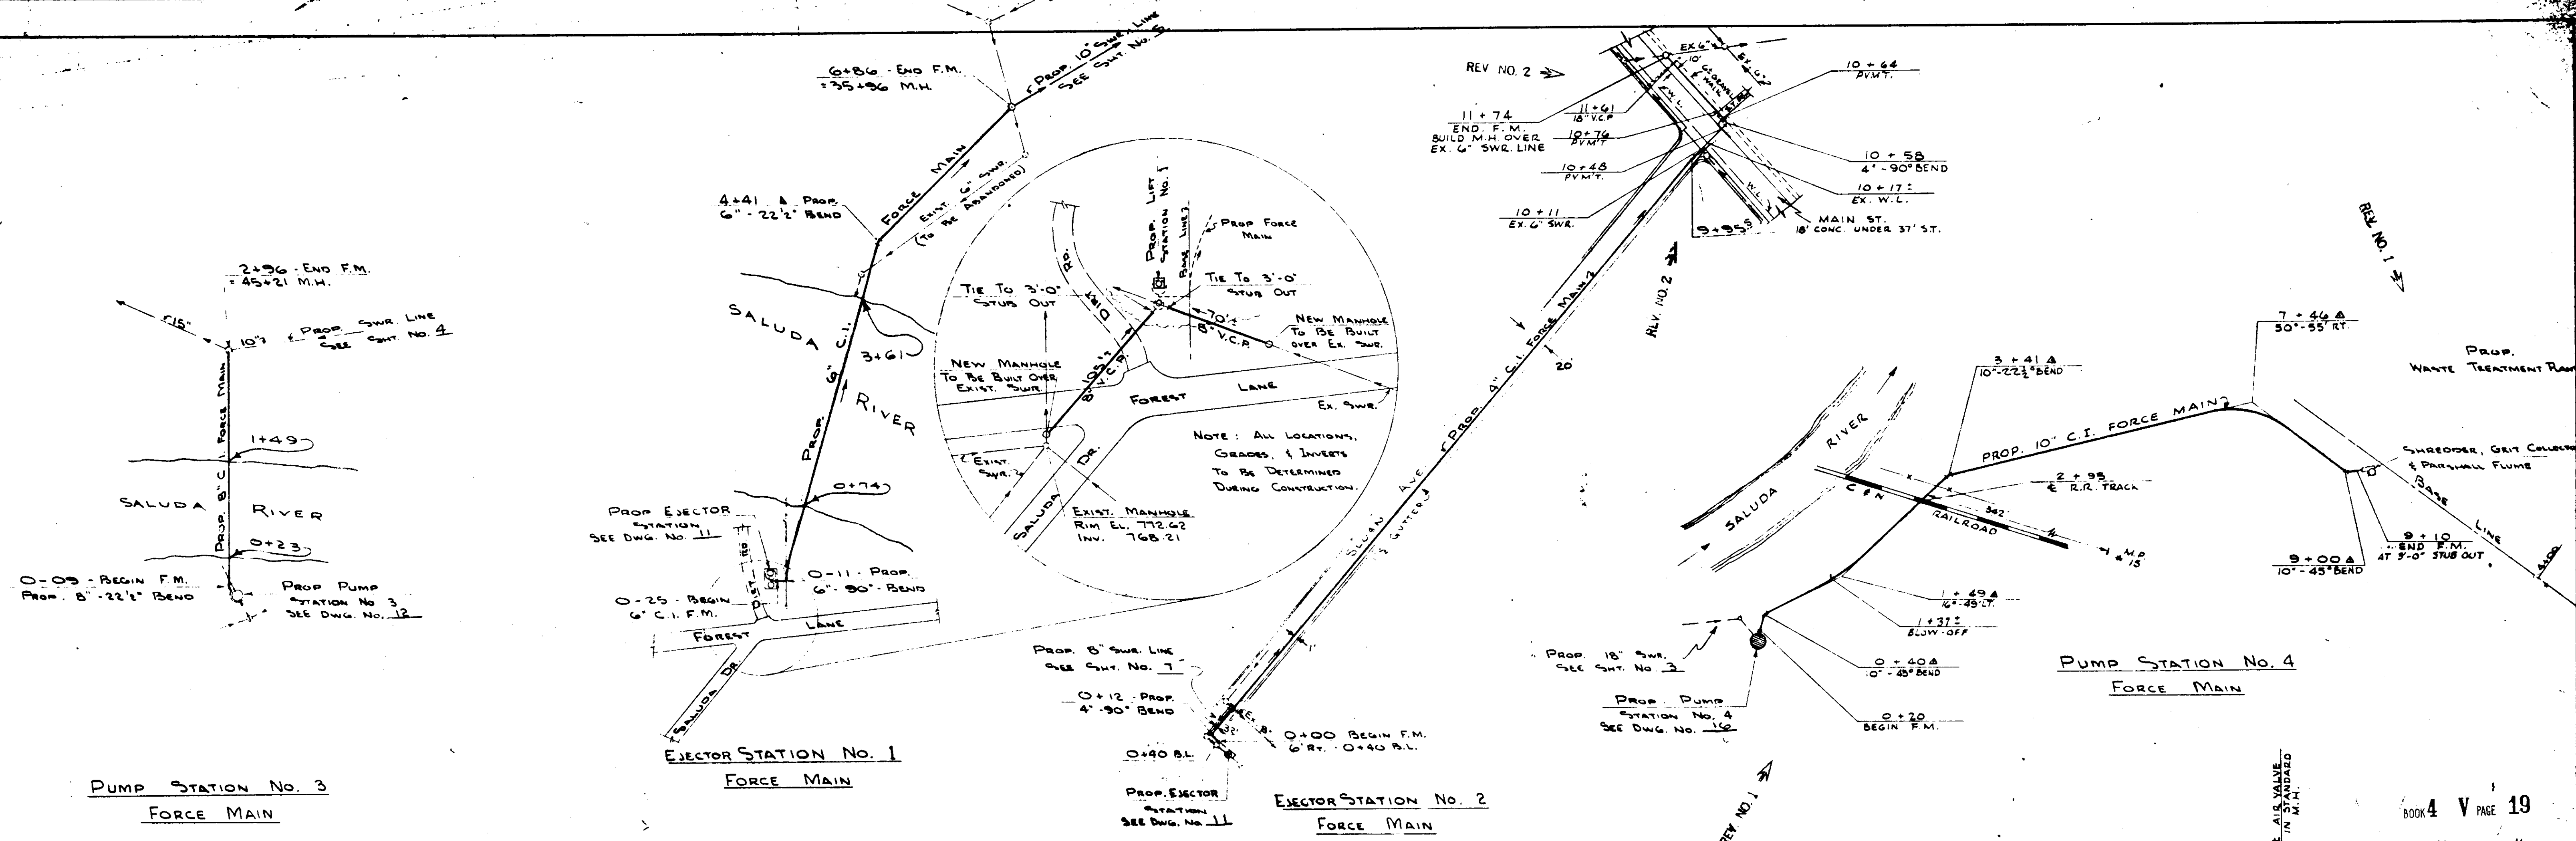 2+96 - END F.M.
= 45+21 M.H.
15"
10"
PROP. SWR. LINE
SEE SHT. NO. 4
PROP. 8" C.I. FORCE MAIN
1+49
SALUDA RIVER
0+23
0-09 - BEGIN F.M.
PROP. 8" - 22½° BEND
PROP PUMP
STATION NO 3
SEE DWG. NO. 12
PUMP STATION NO. 3
FORCE MAIN
6+86 - END F.M.
= 35+96 M.H.
PROP. 10" SWR. LINE
SEE SHT. NO. 5
FORCE MAIN
EXIST. 6" SWR.
(TO BE ABANDONED)
4+41 Δ PROP.
6" - 22½° BEND
SALUDA
RIVER
3+61
PROP. 6" C.I.
0+74
PROP EJECTOR
STATION
SEE DWG. NO. 11
DIRT RD.
0-11 - PROP.
6" - 90° - BEND
0-25 - BEGIN
6" C.I. F.M.
FOREST LANE
SALUDA DR.
EJECTOR STATION NO. 1
FORCE MAIN
PROP. LIFT
STATION NO. 1
BASE LINE
PROP FORCE
MAIN
DIRT RD.
TIE TO 3'-0"
STUB OUT
TIE TO 3'-0"
STUB OUT
70'±
8" V.C.P.
NEW MANHOLE
TO BE BUILT
OVER EX. SWR.
NEW MANHOLE
TO BE BUILT OVER
EXIST. SWR.
105'±
8" V.C.P.
FOREST LANE
EX. SWR.
EXIST.
SWR.
SALUDA DR.
NOTE: ALL LOCATIONS,
GRADES, & INVERTS
TO BE DETERMINED
DURING CONSTRUCTION.
EXIST. MANHOLE
RIM EL. 772.62
INV. 768.21
REV NO. 2
EX. 6"
EX. 6"
10'
6' GRAVEL
WALK
W.L.
10 + 64
PVM'T.
11 + 74
END. F.M.
BUILD M.H OVER
EX. 6" SWR. LINE
11+61
18" V.C.P
10+76
PVM'T
10+48
PVM'T.
10 + 58
4" - 90° BEND
10 + 17 ±
EX. W.L.
W.L.
10 + 11
EX. 6" SWR.
9+95.5
MAIN ST.
18' CONC. UNDER 37' S.T.
REV. NO. 2
PROP. 4" C.I. FORCE MAIN
20'
SLOAN AVE.
& GUTTER
PROP. 8" SWR. LINE
SEE SHT. NO. 7
0+12 - PROP.
4" - 90° BEND
0+40 B.L.
0+00 BEGIN F.M.
6' RT. - 0+40 B.L.
PROP. EJECTOR
STATION
SEE DWG. NO. 11
EJECTOR STATION NO. 2
FORCE MAIN
REV. NO. 1
7 + 46 Δ
50°-55' RT.
PROP.
WASTE TREATMENT PLAN
3 + 41 Δ
10" - 22½° BEND
PROP. 10" C.I. FORCE MAIN
SHREDDER, GRIT COLLECTO
& PARSHALL FLUME
BASE LINE
4+00
2 + 95
℄ R.R. TRACK
SALUDA RIVER
C & N
RAILROAD
342'
M.P.
15
9 + 10
END F.M.
AT 3'-0" STUB OUT
9 + 00 Δ
10" - 45° BEND
1 + 49 Δ
16°-45' LT.
1 + 37 ±
BLOW-OFF
PROP. 18" SWR.
SEE SHT. NO. 3
0 + 40 Δ
10" - 45° BEND
PROP. PUMP
STATION NO. 4
SEE DWG. NO. 16
0 + 20
BEGIN F.M.
PUMP STATION NO. 4
FORCE MAIN
REV. NO. 1
AIR VALVE
IN STANDARD
M.H.
BOOK 4 V PAGE 19